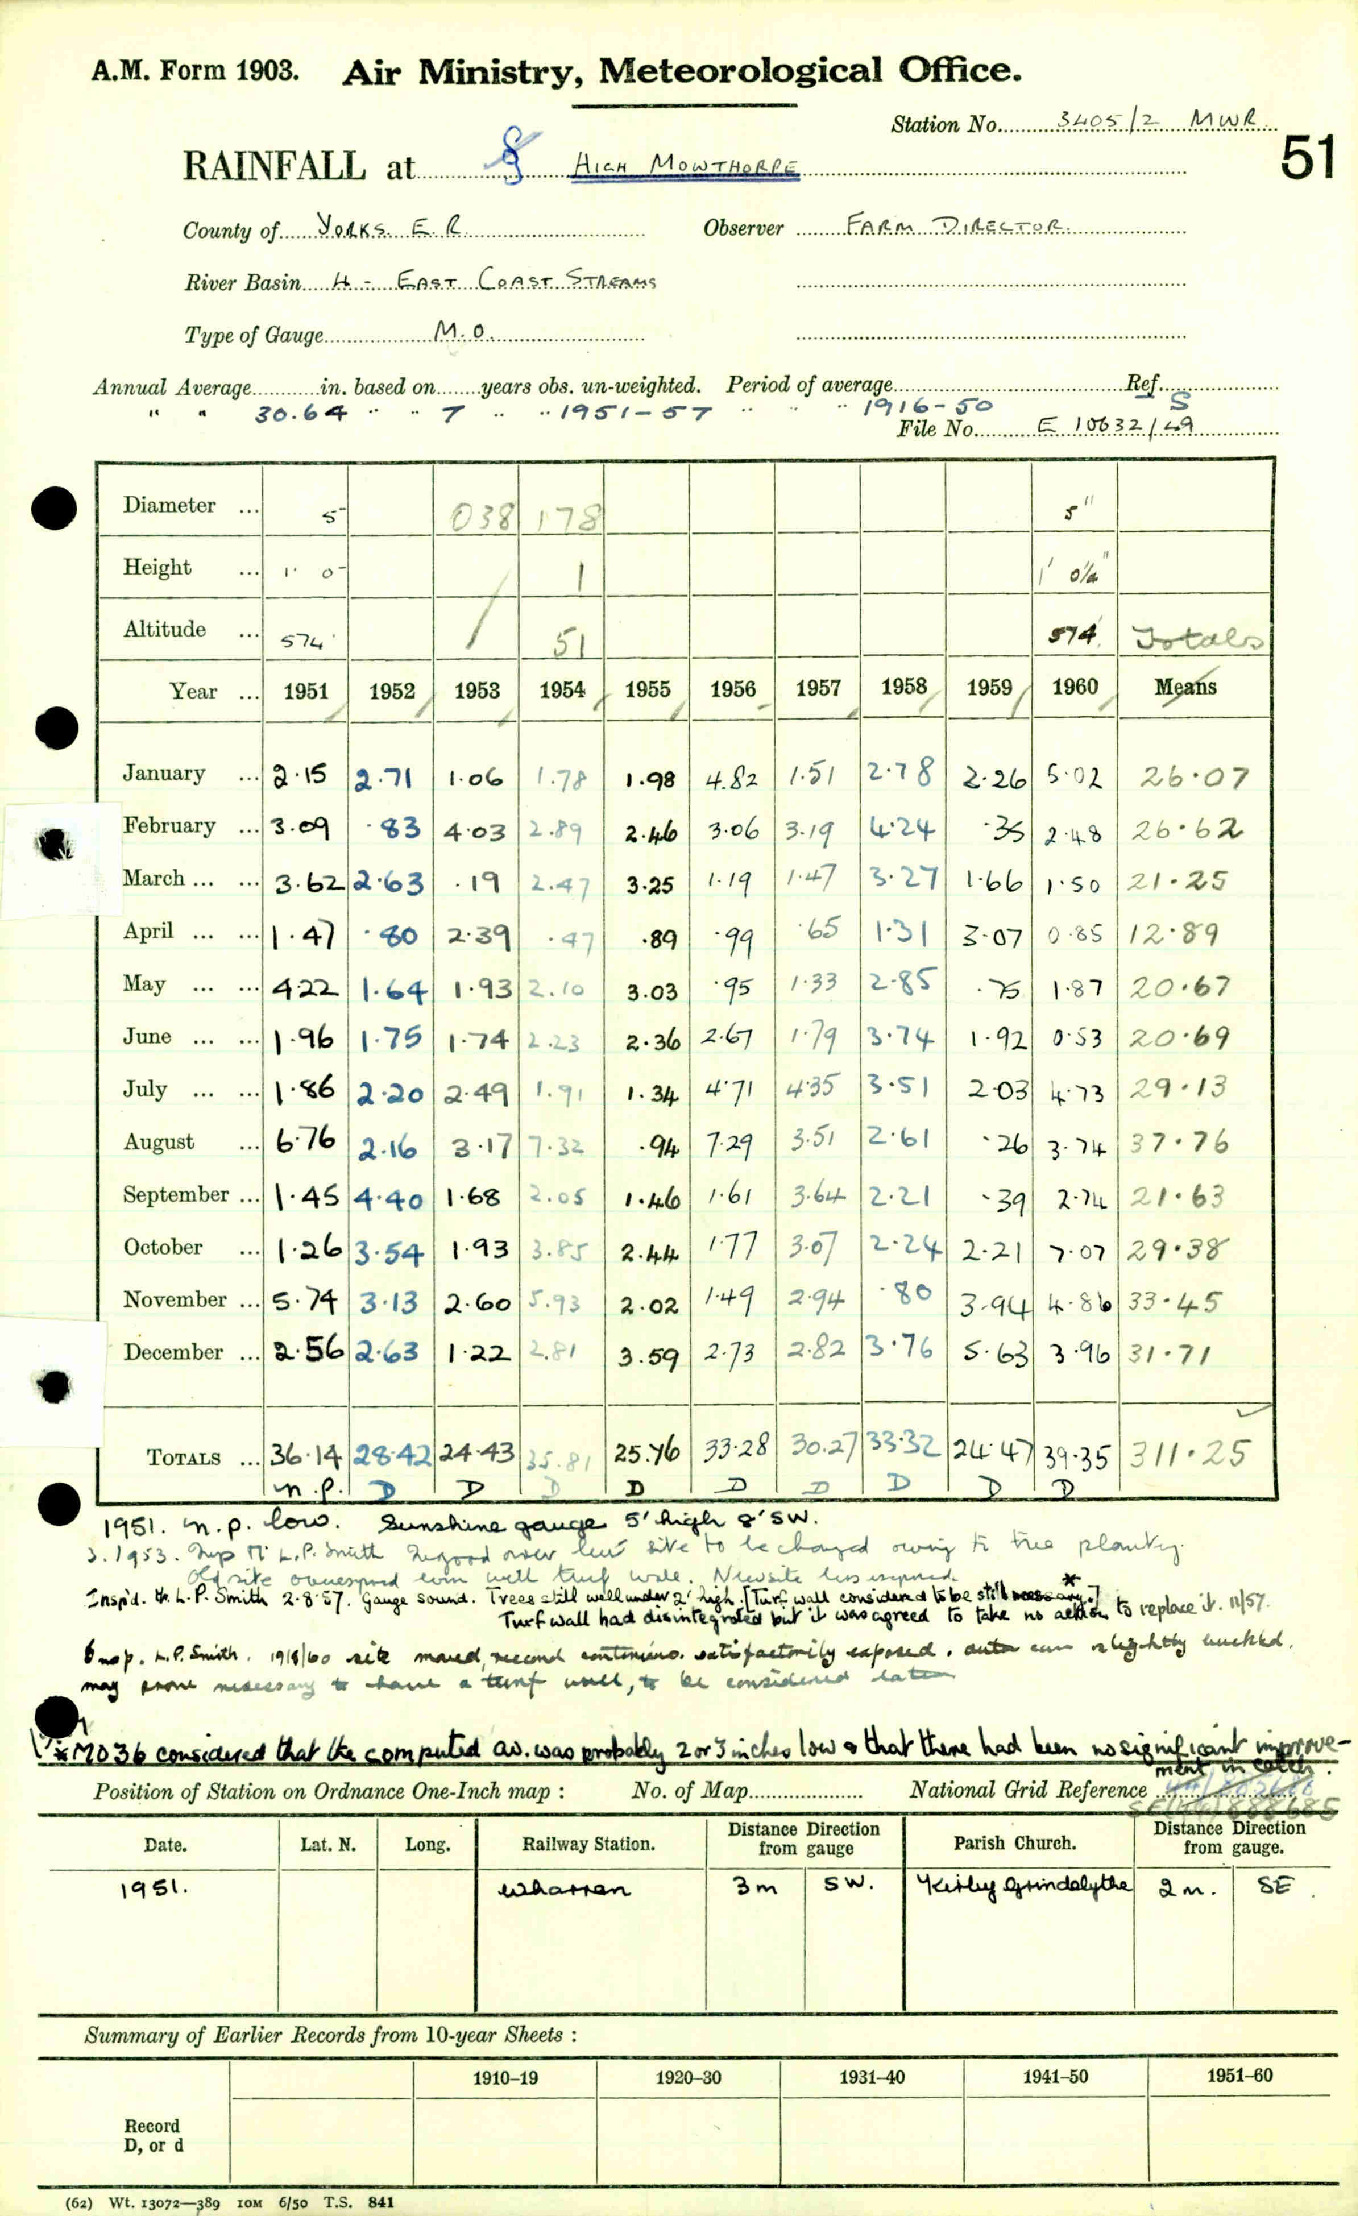 A.M. Form 1903. Air Ministry, Meteorological Office.
Station No. 3405/2 MWR
51
RAINFALL at HIGH MOWTHORPE
County of YORKS E.R. Observer FARM DIRECTOR.
River Basin 4 - EAST COAST STREAMS
Type of Gauge M.O.
Annual Average in. based on years obs. un-weighted. Period of average Ref.
" " 30.64 " " 7 " " 1951-57 " " " 1916-50 S
File No. E 10632/49
Diameter ... 5 038 178 5"
Height ... 1' 0 1 1' 0¼"
Altitude ... 574' / 51 574' Totals
Year ... 1951 1952 1953 1954 1955 1956 1957 1958 1959 1960 Means
January ... 2.15 2.71 1.06 1.78 1.98 4.82 1.51 2.78 2.26 5.02 26.07
February ... 3.09 .83 4.03 2.89 2.46 3.06 3.19 4.24 .35 2.48 26.62
March ... ... 3.62 2.63 .19 2.47 3.25 1.19 1.47 3.27 1.66 1.50 21.25
April ... ... 1.47 .80 2.39 .47 .89 .99 .65 1.31 3.07 0.85 12.89
May ... ... 4.22 1.64 1.93 2.10 3.03 .95 1.33 2.85 .75 1.87 20.67
June ... ... 1.96 1.75 1.74 2.23 2.36 2.67 1.79 3.74 1.92 0.53 20.69
July ... ... 1.86 2.20 2.49 1.91 1.34 4.71 4.35 3.51 2.03 4.73 29.13
August ... 6.76 2.16 3.17 7.32 .94 7.29 3.51 2.61 .26 3.74 37.76
September ... 1.45 4.40 1.68 2.05 1.46 1.61 3.64 2.21 .39 2.74 21.63
October ... 1.26 3.54 1.93 3.85 2.44 1.77 3.07 2.24 2.21 7.07 29.38
November ... 5.74 3.13 2.60 5.93 2.02 1.49 2.94 .80 3.94 4.86 33.45
December ... 2.56 2.63 1.22 2.81 3.59 2.73 2.82 3.76 5.63 3.96 31.71
TOTALS ... 36.14 28.42 24.43 35.81 25.76 33.28 30.27 33.32 24.47 39.35 311.25
n.p. D D D D D D D D D
1951. n.p. low. Sunshine gauge 5' high 8' SW.
3.1953. Insp Mr L.P. Smith site to be changed owing to tree planting.
Old site overexposed even with turf wall. New site less exposed.
Insp'd. Mr. L.P. Smith 2.8.57. Gauge sound. Trees still well under 2' high. [Turf wall considered to be still necessary.] *
Turf wall had disintegrated but it was agreed to take no action to replace it. 11/57.
Insp. L.P. Smith. 19/8/60 site moved, record continuous. satisfactorily exposed. outer can slightly buckled.
may prove necessary to have a turf wall, to be considered later
* MO36 considered that the computed av. was probably 2 or 3 inches low & that there had been no significant improve-
ment in catch.
Position of Station on Ordnance One-Inch map : No. of Map National Grid Reference
SE(44)888685
Date. Lat. N. Long. Railway Station. Distance Direction from gauge Parish Church. Distance Direction from gauge.
1951. Wharram 3m SW. Kirby Grindalythe 2m. SE.
Summary of Earlier Records from 10-year Sheets :
1910–19 1920–30 1931–40 1941–50 1951–60
Record
D, or d
(62) Wt. 13072—389 10M 6/50 T.S. 841